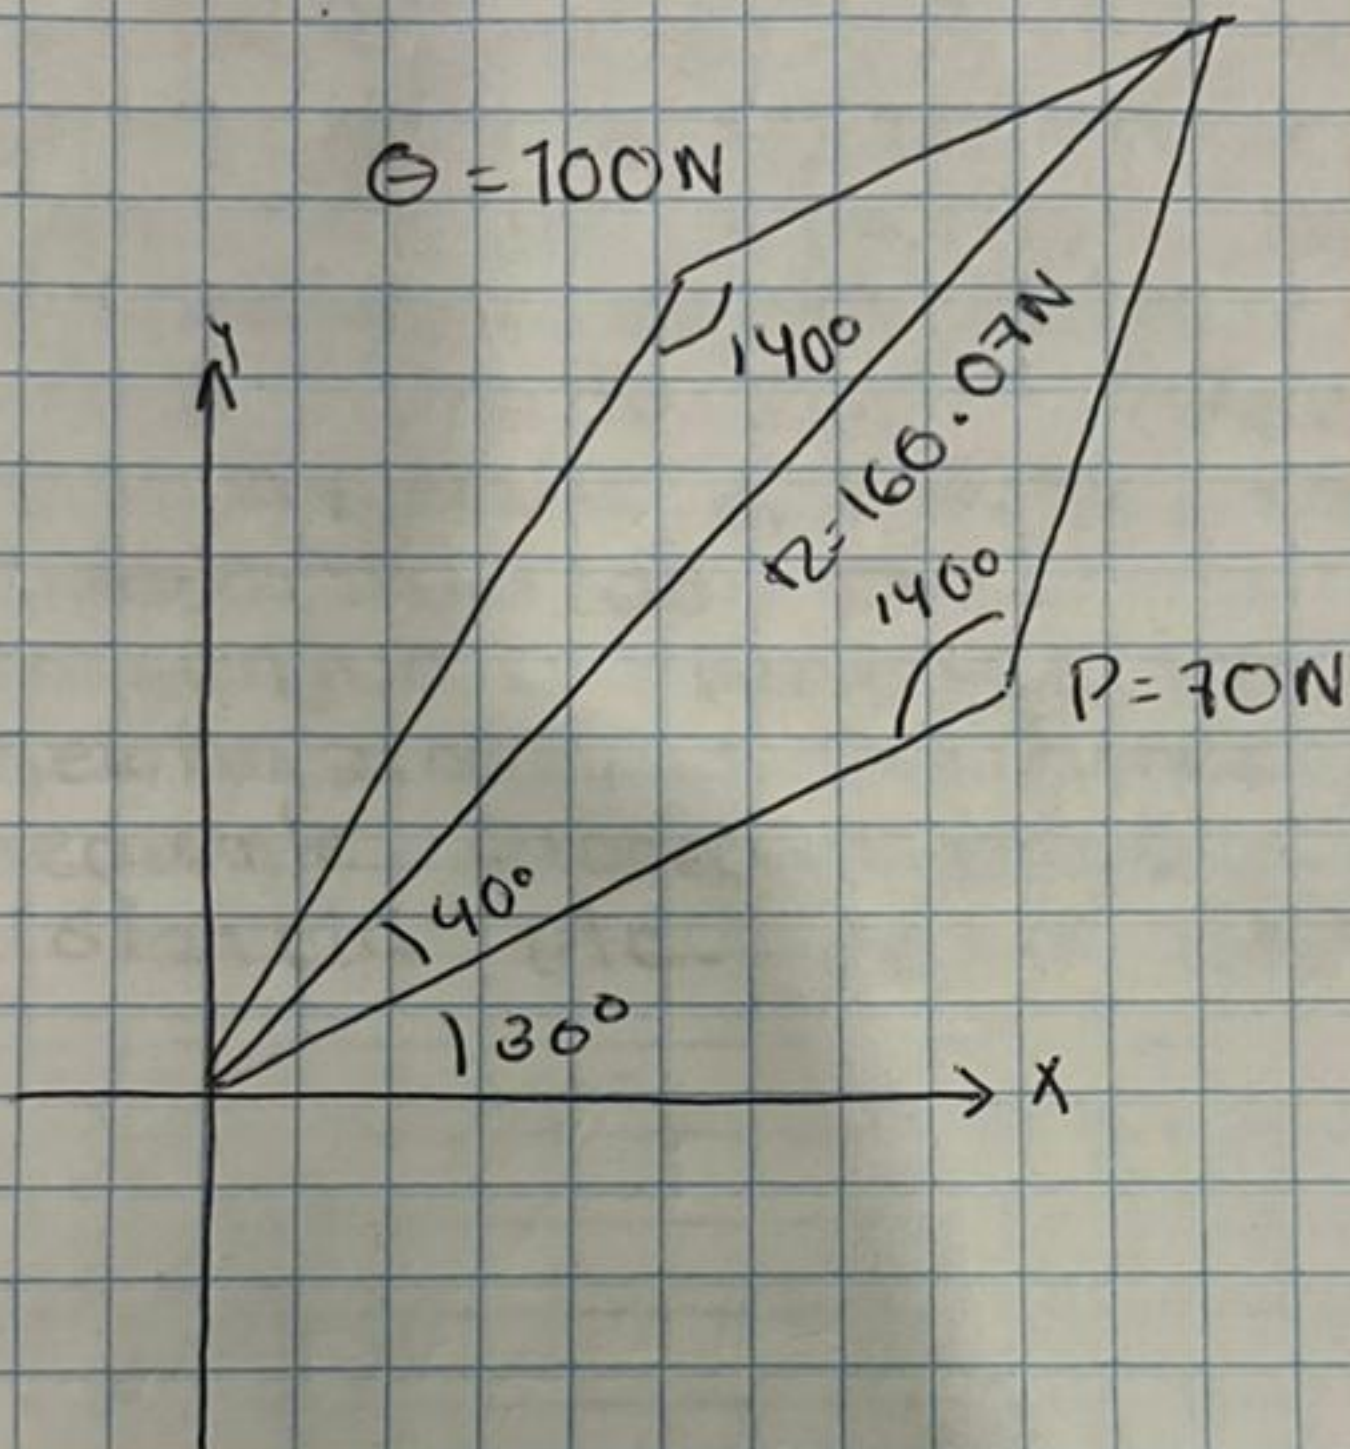 Θ = 100N
y
140°
R=160.07N
140°
P=70N
40°
30°
X